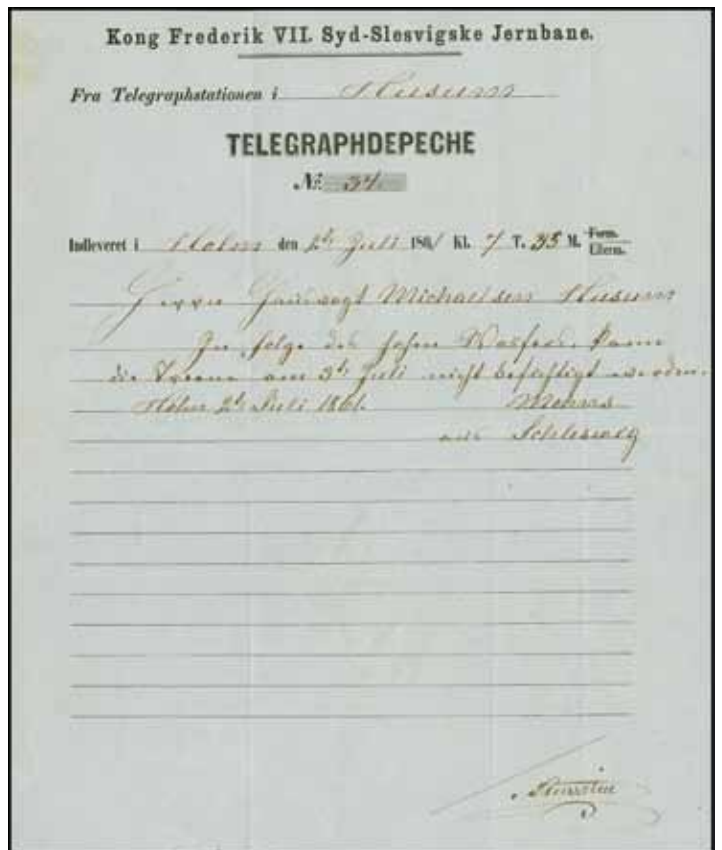 Kong Frederik VII. Syd-Slesvigske Jernbane.
Fra Telegraphstationen i Husum
TELEGRAPHDEPECHE
№ 34
Indleveret i Holm den 2t Juli 1861 Kl. 7 T. 35 M. Form. Efterm.
Herrn Hausvogt Michaelsen Husum
In folge des hohen Wassers, kann
die Treene am 3t Juli nicht besichtigt werden.
Holm 2t Juli 1861.
aus Schleswig